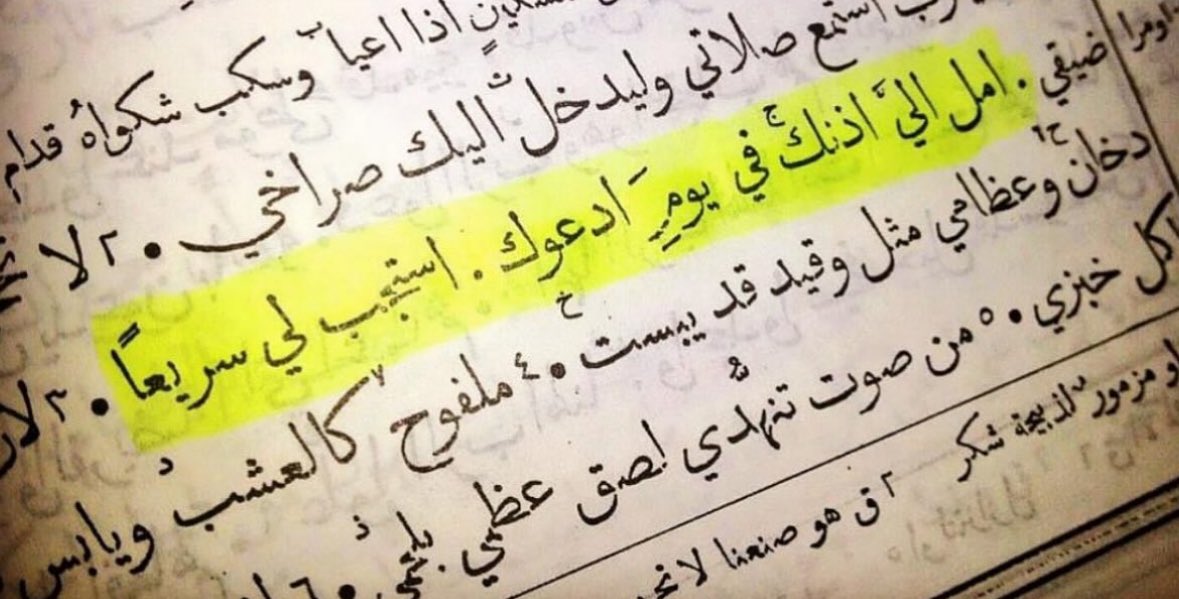 اذا اعيا وسكب شكواهُ قدام
استمع صلاتي وليدخل اليك صراخي • ٢ لا
ضيقي . امل اليَّ اذنك في يومِ ادعوك . استجب لي سريعاً • ٣
دخان وعظامي مثل وقيد قد يبست • ٤ ملفوح كالعشب ويابس
اكل خبزي • ٥ من صوت تنهُّدي لصق عظمي بلحمي • ٦
او مزمور لذبيحة شكر ٢ ق هو صنعنا لا